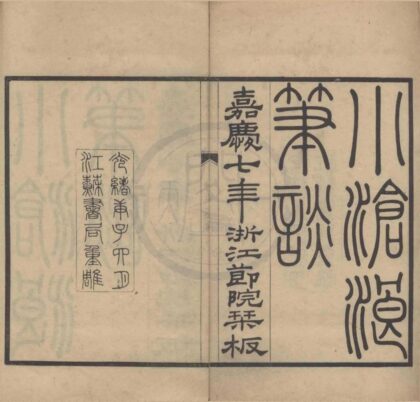 小滄浪
筆談
嘉慶七年浙江節院栞板
光緒庚子六月
江蘇書局重雕